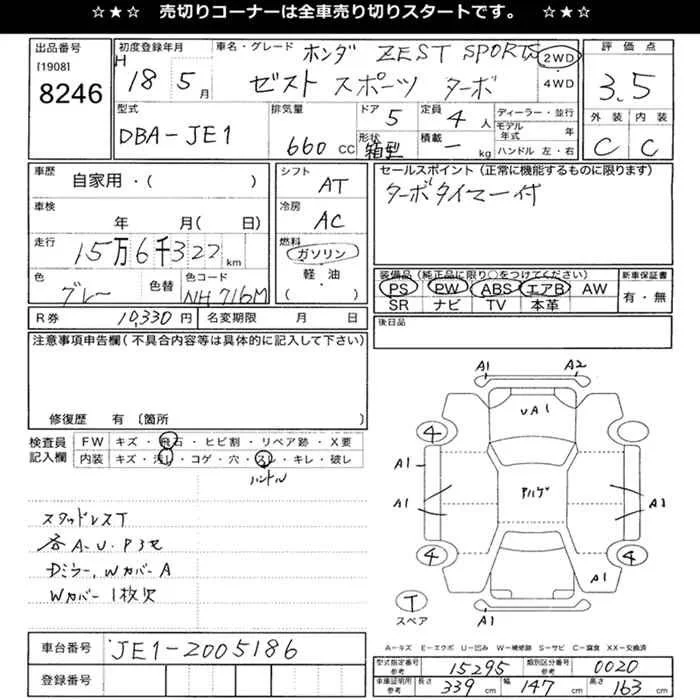 ☆★☆ 売切りコーナーは全車売り切りスタートです。 ☆★☆
出品番号
[1908]
8246
初度登録年月
H 18 5月
車名・グレード ホンダ ZEST SPORTS
ゼスト スポーツ ターボ
2WD
・
4WD
評価点
3.5
外装 内装
C C
型式
DBA-JE1
排気量
660 cc
ドア 5
形状 箱型
定員 4 人
積載 - kg
ディーラー・並行
モデル年式 年
ハンドル 左・右
車歴
自家用・( )
車検
年 月( 日)
走行
15万6千322 km
色
グレー
色替
色コード
NH716M
シフト
AT
冷房
AC
燃料
ガソリン
軽・油
( )
セールスポイント(正常に機能するものに限ります)
ターボタイマー付
装備品(純正品に限り○をつけてください)
PS PW ABS エアB AW
SR ナビ TV 本革
新車保証書
有・無
R券 10,330円 名変期限 月 日
後日品
注意事項申告欄(不具合内容等は具体的に記入して下さい)
修復歴 有〔箇所 〕
検査員
記入欄
FW キズ・飛石・ヒビ割・リペア跡・X要
内装 キズ・汚レ・コゲ・穴・スレ・キレ・破レ
ハンドル
スタッドレスT
各A-U・Pヨセ
Dミラー、WカバーA
Wカバー1枚欠
A1 A2
UA1
4
A1
A1
アルゲ
A1
4 4
A1
T
スペア
A1
A-キズ E-エクボ U-凹み W-補修跡 S-サビ C-腐食 XX-交換済
車台番号 JE1-2005186
登録番号
型式指定番号
参考
15295
類別区分番号
参考
0020
車庫証明用
参考
長さ 339 cm 幅 147 cm 高さ 163 cm